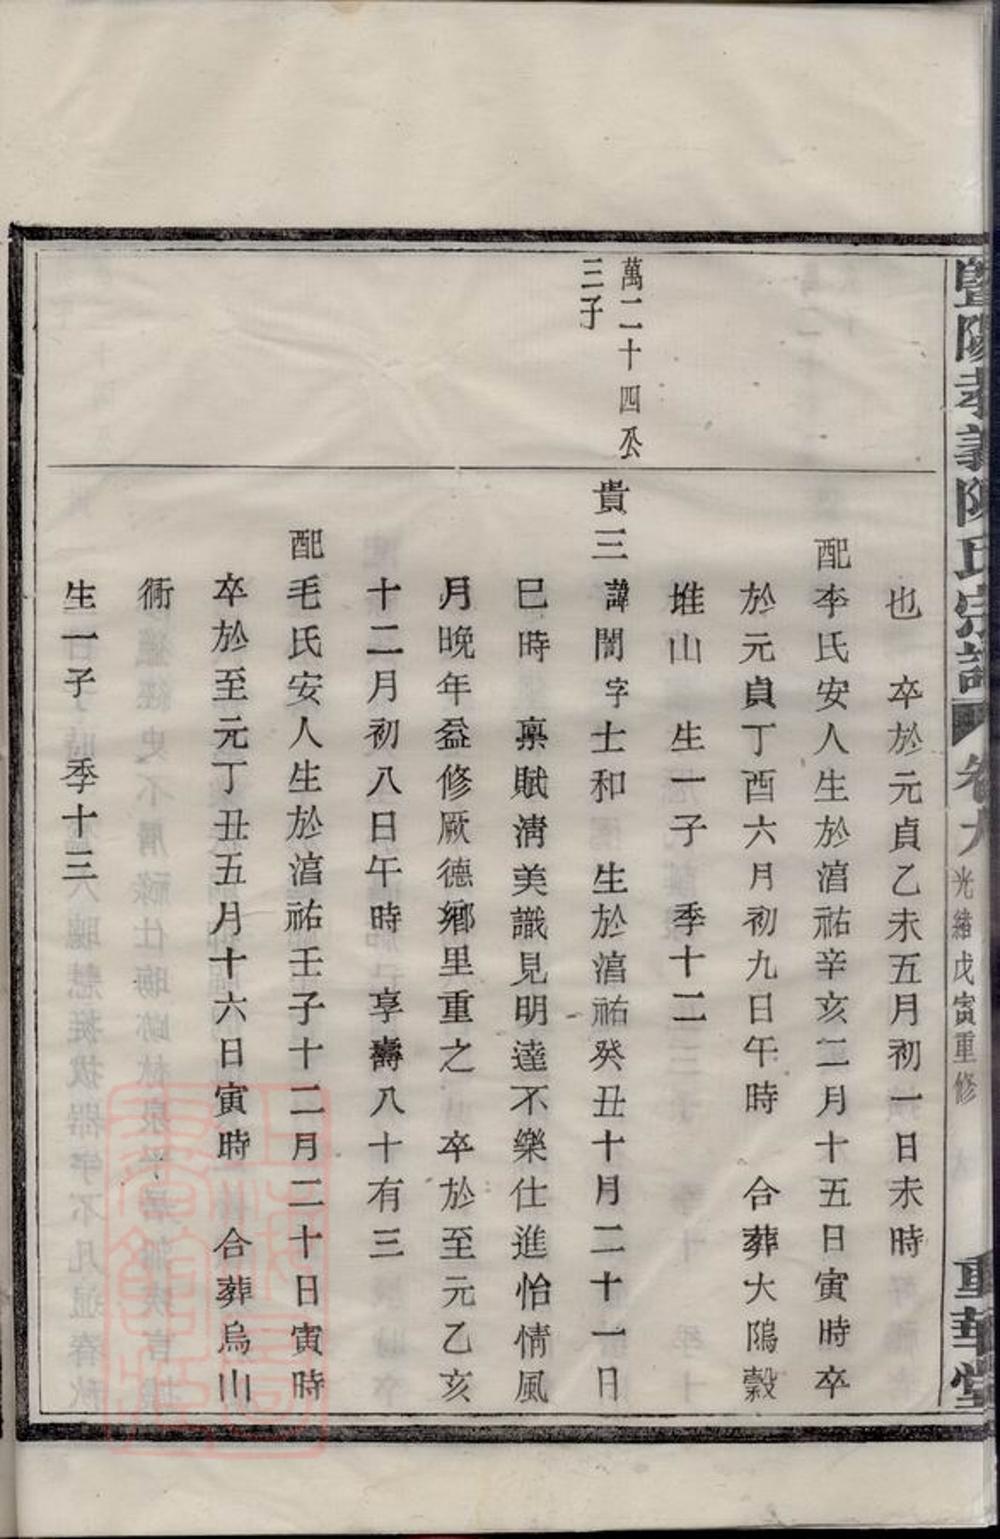 暨陽孝義陳氏宗譜 卷九 光緒戊寅重修 重華堂
也 卒於元貞乙未五月初一日未時
配李氏安人生於湻祐辛亥二月十五日寅時卒
於元貞丁酉六月初九日午時 合葬大隖穀
堆山 生一子 季十二
萬二十四公
三子
貴三 諱誾字士和 生於湻祐癸丑十月二十一日
巳時 稟賦淸美識見明達不樂仕進怡情風
月晚年益修厥德鄕里重之 卒於至元乙亥
十二月初八日午時 享壽八十有三
配毛氏安人生於湻祐壬子十二月二十日寅時
卒於至元丁丑五月十六日寅時 合葬烏山
衕
生一子 季十三